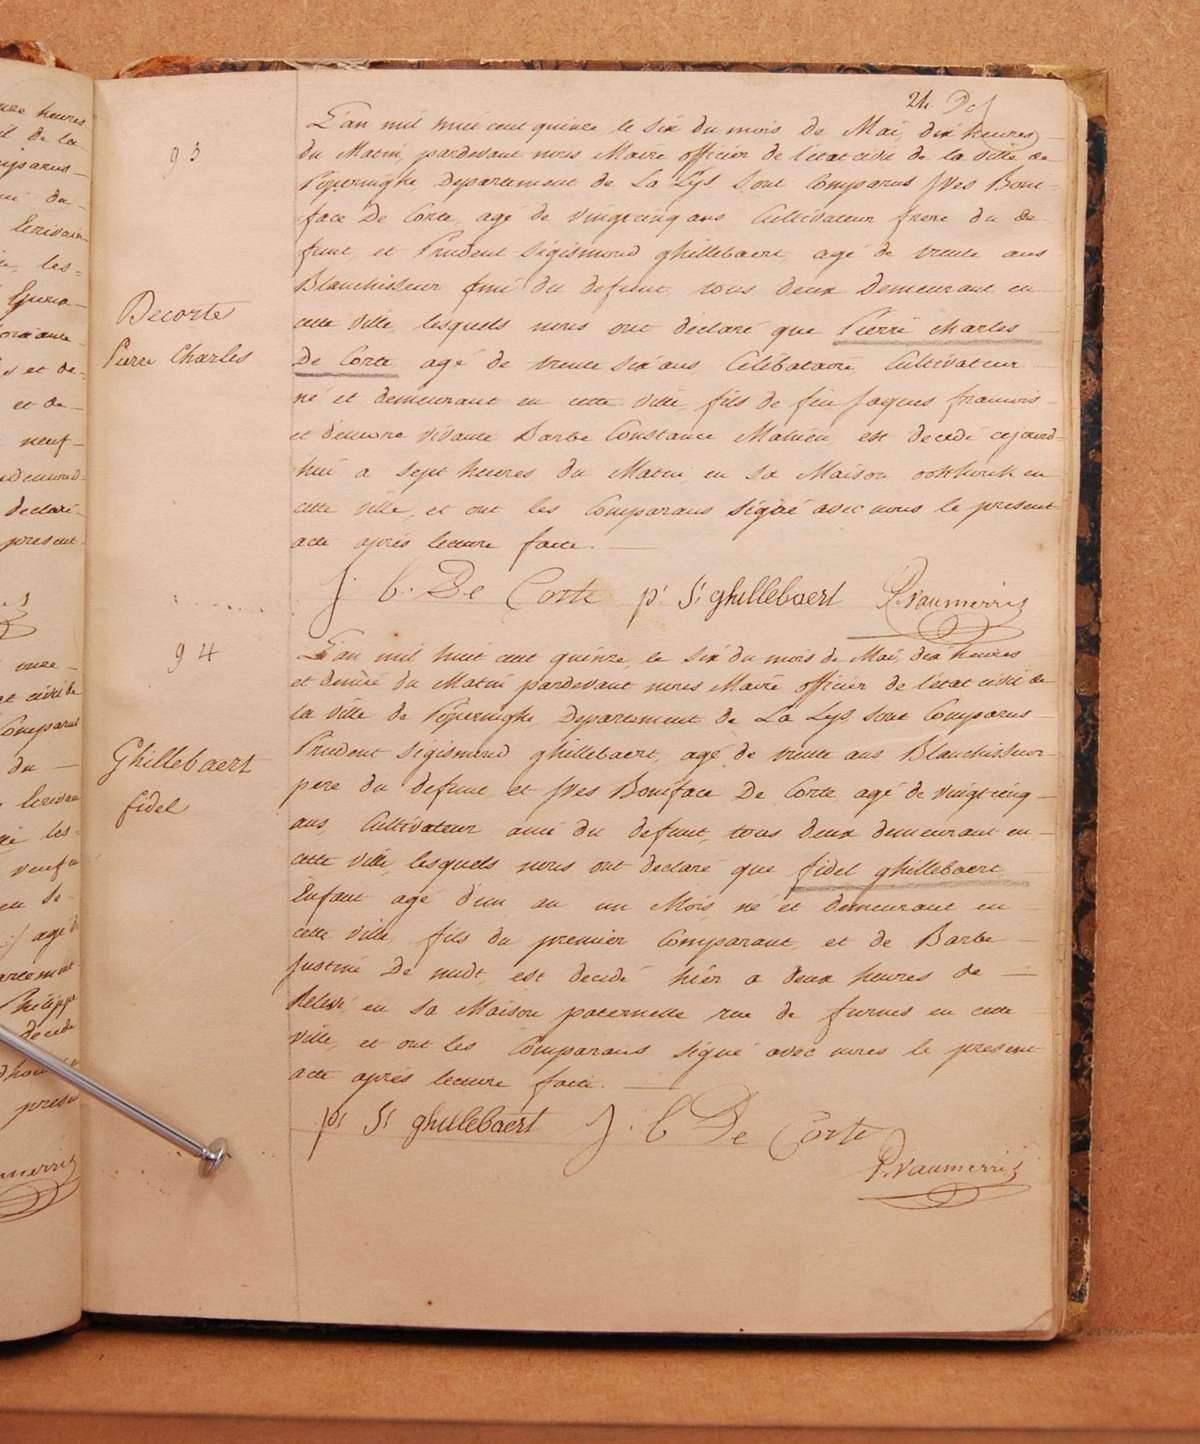 24.
93
L'an mil huit cent quinze le six du mois de Mai, dix heures
du Matin, pardevant nous Maire officier de l'état civil de la ville de
Poperinghe Departement de La Lys sont Comparus Yves Boni-
face De Corte, agé de vingtcinq ans Cultivateur frere du de
funt, et Prudent Sigismond ghillebaert, agé de trente ans
Blanchisseur ami du defunt, tous deux Demeurant en
cette ville, lesquels nous ont déclaré que Pierre charles
De Corte agé de trente six ans Célibataire Cultivateur
né et demeurant en cette ville, fils de feu Jaques francois
et d'encore vivante Barbe Constance Mahieu, est decedé cejourd-
hui a sept heures du Matin en sa Maison en
cette ville, et ont les Comparans signé avec nous le present
acte après lecture faite.
Decorte
Pierre Charles
J. b. De Corte pt St ghillebaert P. Vanmerris
94
L'an mil huit cent quinze, le six du mois de Mai, dix heures
et demie du Matin pardevant nous Maire officier de l'état civil de
la ville de Poperinghe, Departement de La Lys sont Comparus
Prudent Sigismond ghillebaert, agé de trente ans Blanchisseur
pere du defunt et Yves Boniface De Corte agé de vingtcinq
ans, Cultivateur ami du defunt, tous deux demeurant en
cette ville, lesquels nous ont declaré que fidel ghillebaert
Enfant agé d'un an un Mois, né et demeurant en
cette ville, fils du premier Comparant, et de Barbe
Justine De nudt, est decedé hier a deux heures de
Relevé en sa Maison paternelle rue de furnes en cette
ville, et ont les Comparans signé avec nous le present
acte après lecture faite.
Ghillebaert
fidel
pt St ghillebaert J. b De Corte
P. Vanmerris